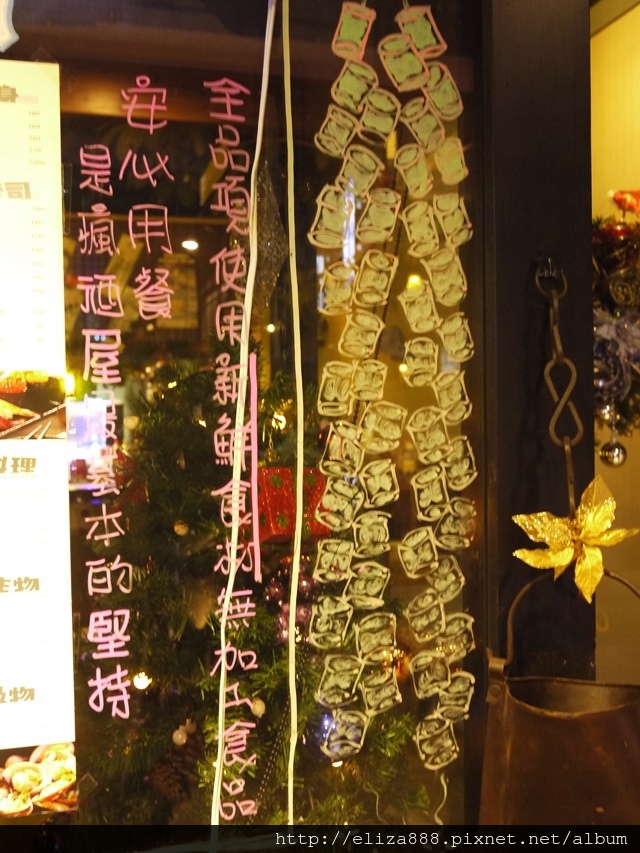 全品項使用新鮮食材無加工食品
安心用餐
是瘋酒屋最基本的堅持
司
料理
物
物
http://eliza888.pixnet.net/album